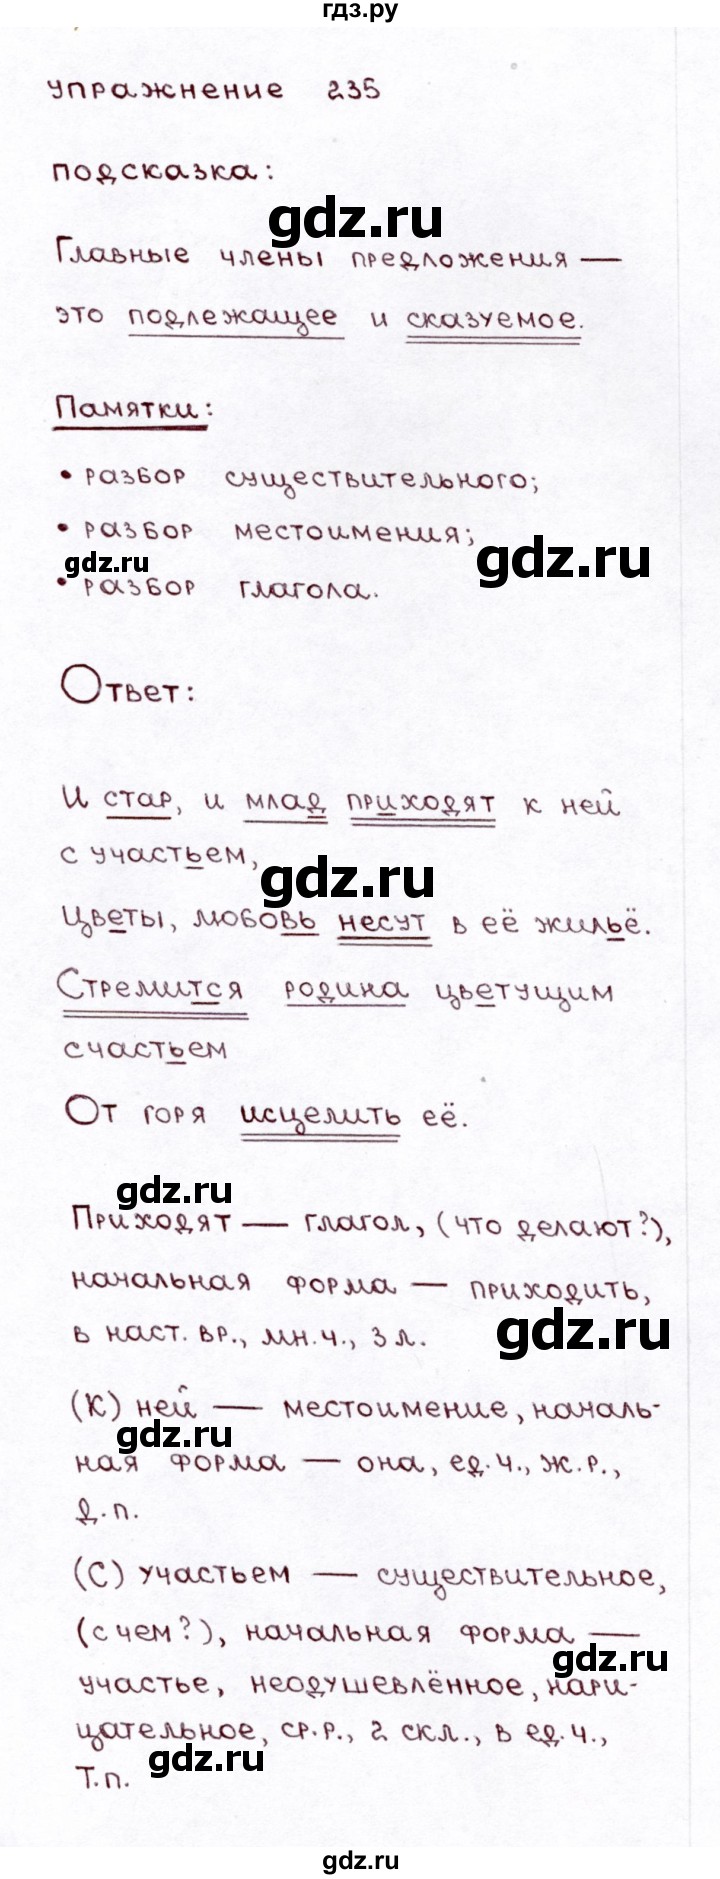 гдз.ру
упражнение 235
подсказка:
gdz.ru
Главные члены предложения —
это подлежащее и сказуемое.
Памятки:
• разбор существительного;
• разбор местоимения;
gdz.ru
gdz.ru
• разбор глагола.
Ответ:
И стар, и млад приходят к ней
с участьем,
gdz.ru
Цветы, любовь несут в её жильё.
Стремится родина цветущим
счастьем
От горя исцелить её.
gdz.ru
Приходят — глагол, (что делают?),
начальная форма — приходить,
в наст. вр., мн.ч., 3 л.
gdz.ru
(К) ней — местоимение, началь-
gdz.ru
ная форма — она, ед.ч., ж.р.,
д.п.
(С) участьем — существительное,
(с чем?), начальная форма —
gdz.ru
участье, неодушевлённое, нари-
цательное, ср.р., 2 скл., в ед.ч.,
gdz.ru
Т.п.
gdz.ru